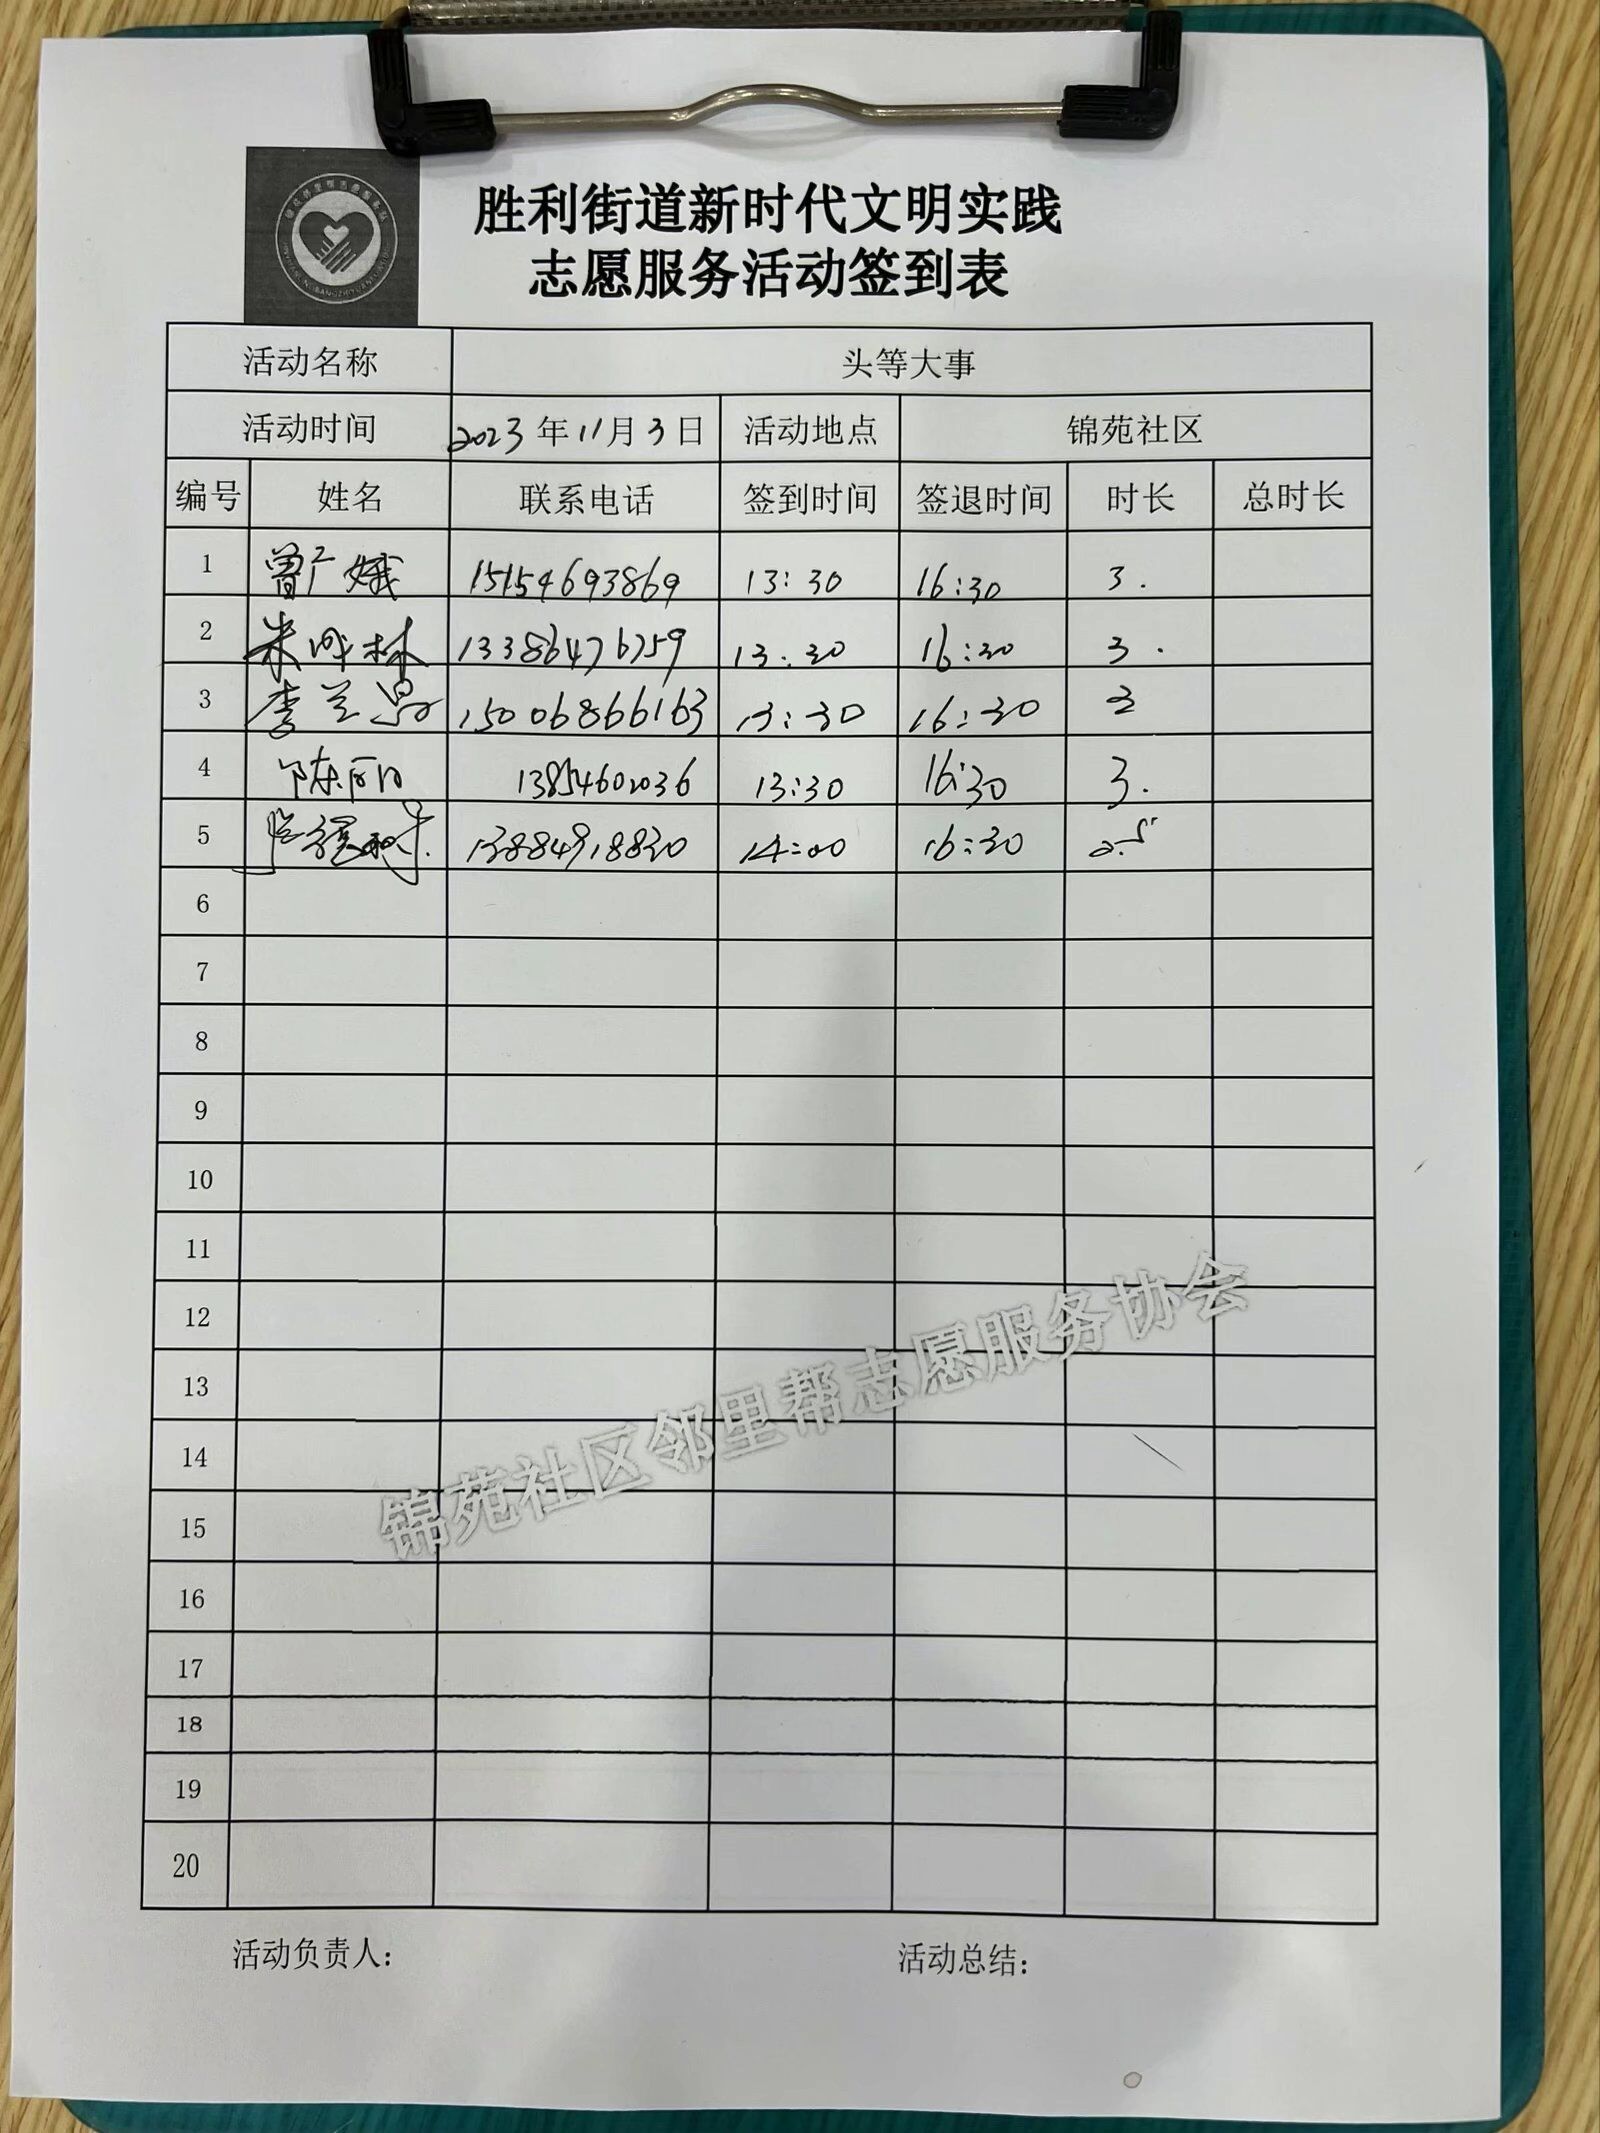 胜利街道新时代文明实践
志愿服务活动签到表
活动名称 头等大事
活动时间 2023年11月3日 活动地点 锦苑社区
编号 姓名 联系电话 签到时间 签退时间 时长 总时长
1 曾广娥 15154693869 13:30 16:30 3.
2 朱成林 13386476759 13:30 16:30 3.
3 李兰 15006866163 13:30 16:30 3
4 陈 13854602036 13:30 16:30 3.
5 13884918830 14:00 16:30 2.5
6
7
8
9
10
11
12
13
14
15
16
17
18
19
20
锦苑社区邻里帮志愿服务协会
活动负责人: 活动总结: